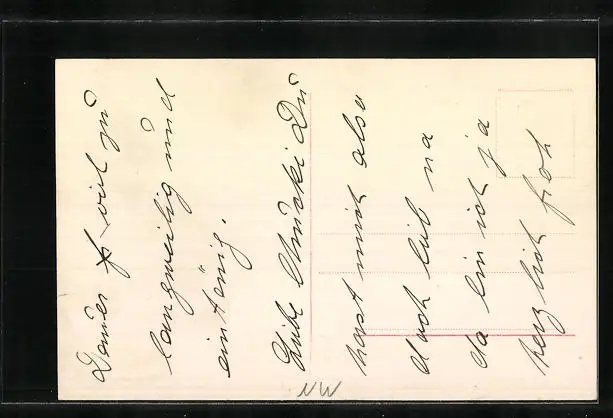 Dauer viel zu
langweilig und
eintönig.
Liebe Mucki Du
hast mich also
doch lieb na
da bin ich ja
herzlich froh
NW